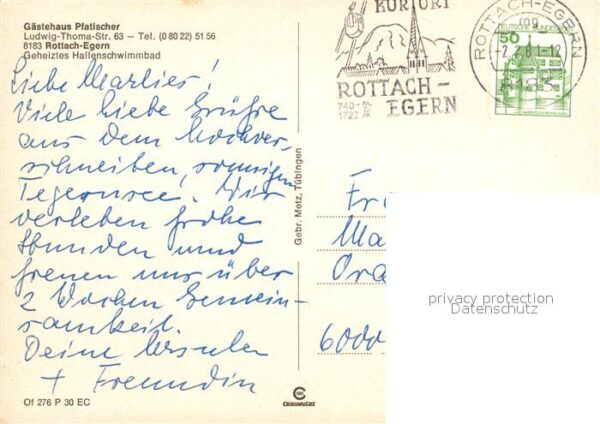 Gästehaus Pfatischer
Ludwig-Thoma-Str. 63 – Tel. (0 80 22) 51 56
8183 Rottach-Egern
Geheiztes Hallenschwimmbad
Liebe Marlies!
Viele liebe Grüße
aus dem hochver-
schneiten, sonnigen
Tegernsee. Wir
verleben frohe
Stunden und
freuen uns über
2 Wochen Gemein-
samkeit.
Deine Ursula
+ Freundin
Of 276 P 30 EC
CHROMOLUX
Gebr. Metz, Tübingen
KURORT
ROTTACH-
EGERN
740-
1723
ROTTACH-EGERN
-2.2.81-12
8183
50
DEUTSCHE BUNDESPOST
Fr
Ma
Ora
6000
privacy protection
Datenschutz